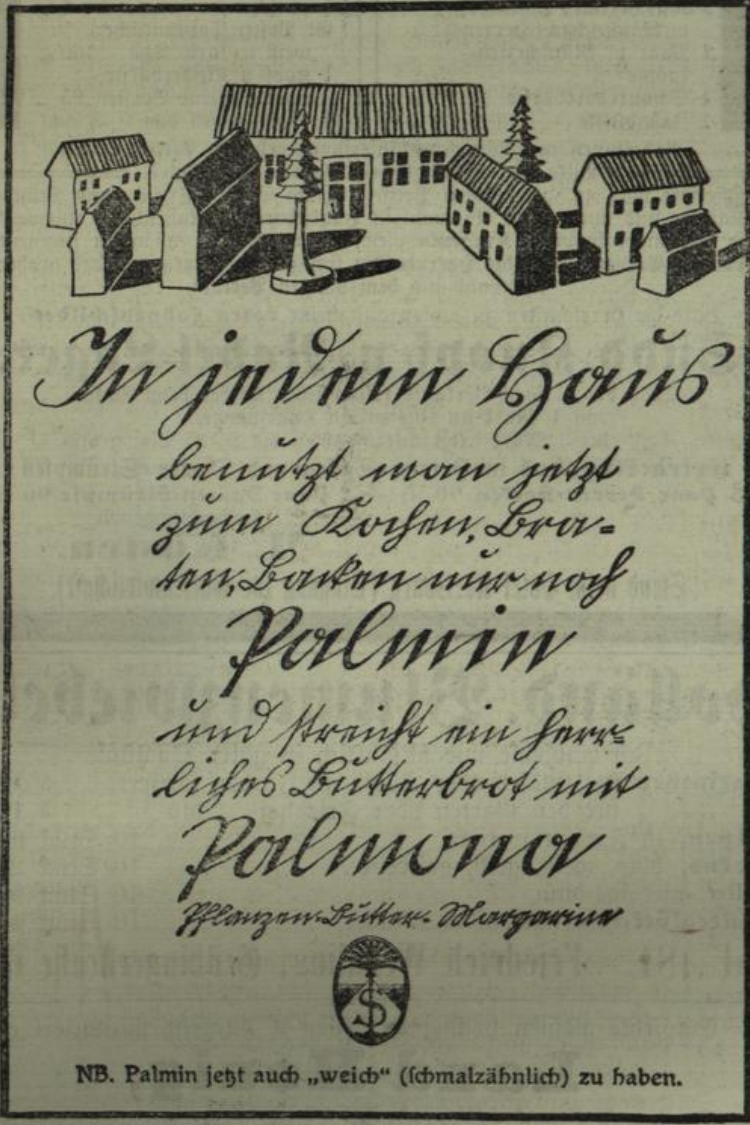 In jedem Haus
benutzt man jetzt
zum Kochen, Bra=
ten, Backen nur noch
Palmin
und streicht ein herr=
liches Butterbrot mit
Palmona
Pflanzen-Butter-Margarine
S
NB. Palmin jetzt auch „weich“ (schmalzähnlich) zu haben.